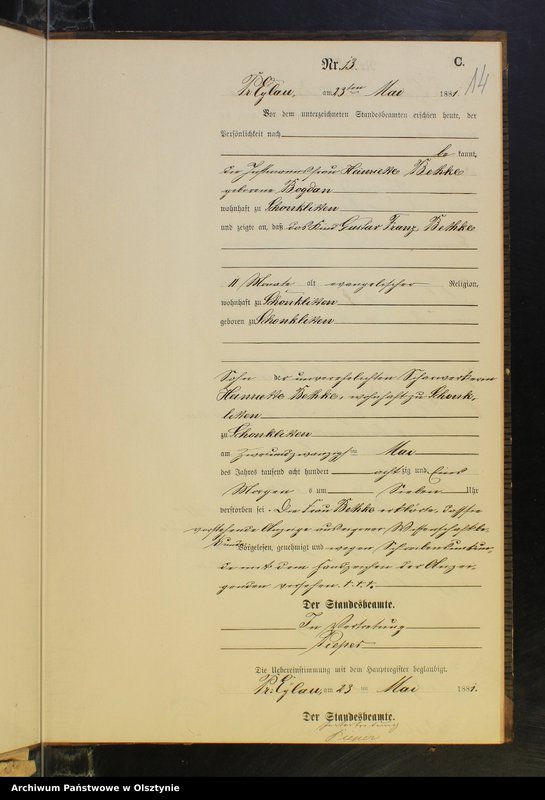 Nr. 13
C.
14
Pr. Eylau, am 23ten Mai 1881.
Vor dem unterzeichneten Standesbeamten erschien heute, der
Persönlichkeit nach
be kannt,
die Instmannsfrau Henriette Bethke
geborene Bogdan
wohnhaft zu Schonklitten
und zeigte an, daß das Kind Gustav Franz Bethke
11 Monate alt evangelischer Religion,
wohnhaft zu Schonklitten
geboren zu Schonklitten
Sohn der unverehelichten Scharwerkerin
Henriette Bethke, wohnhaft zu Schonk-
litten
zu Schonklitten
am zweiundzwanzigsten Mai
des Jahres tausend acht hundert achtzig und Eins
Morgens um Sieben Uhr
verstorben sei. Die Frau Bethke erklärte, daß sie
vorstehende Anzeige aus eigener Wissenschaft be-
kunde
Vorgelesen, genehmigt und wegen Schreibensunkun-
de mit dem Handzeichen der Anzei-
genden versehen. +++
Der Standesbeamte.
In Vertretung
Pieper
Die Uebereinstimmung mit dem Hauptregister beglaubigt.
Pr. Eylau, am 23 ten Mai 1881.
Der Standesbeamte.
In Vertretung
Pieper
Archiwum Państwowe w Olsztynie